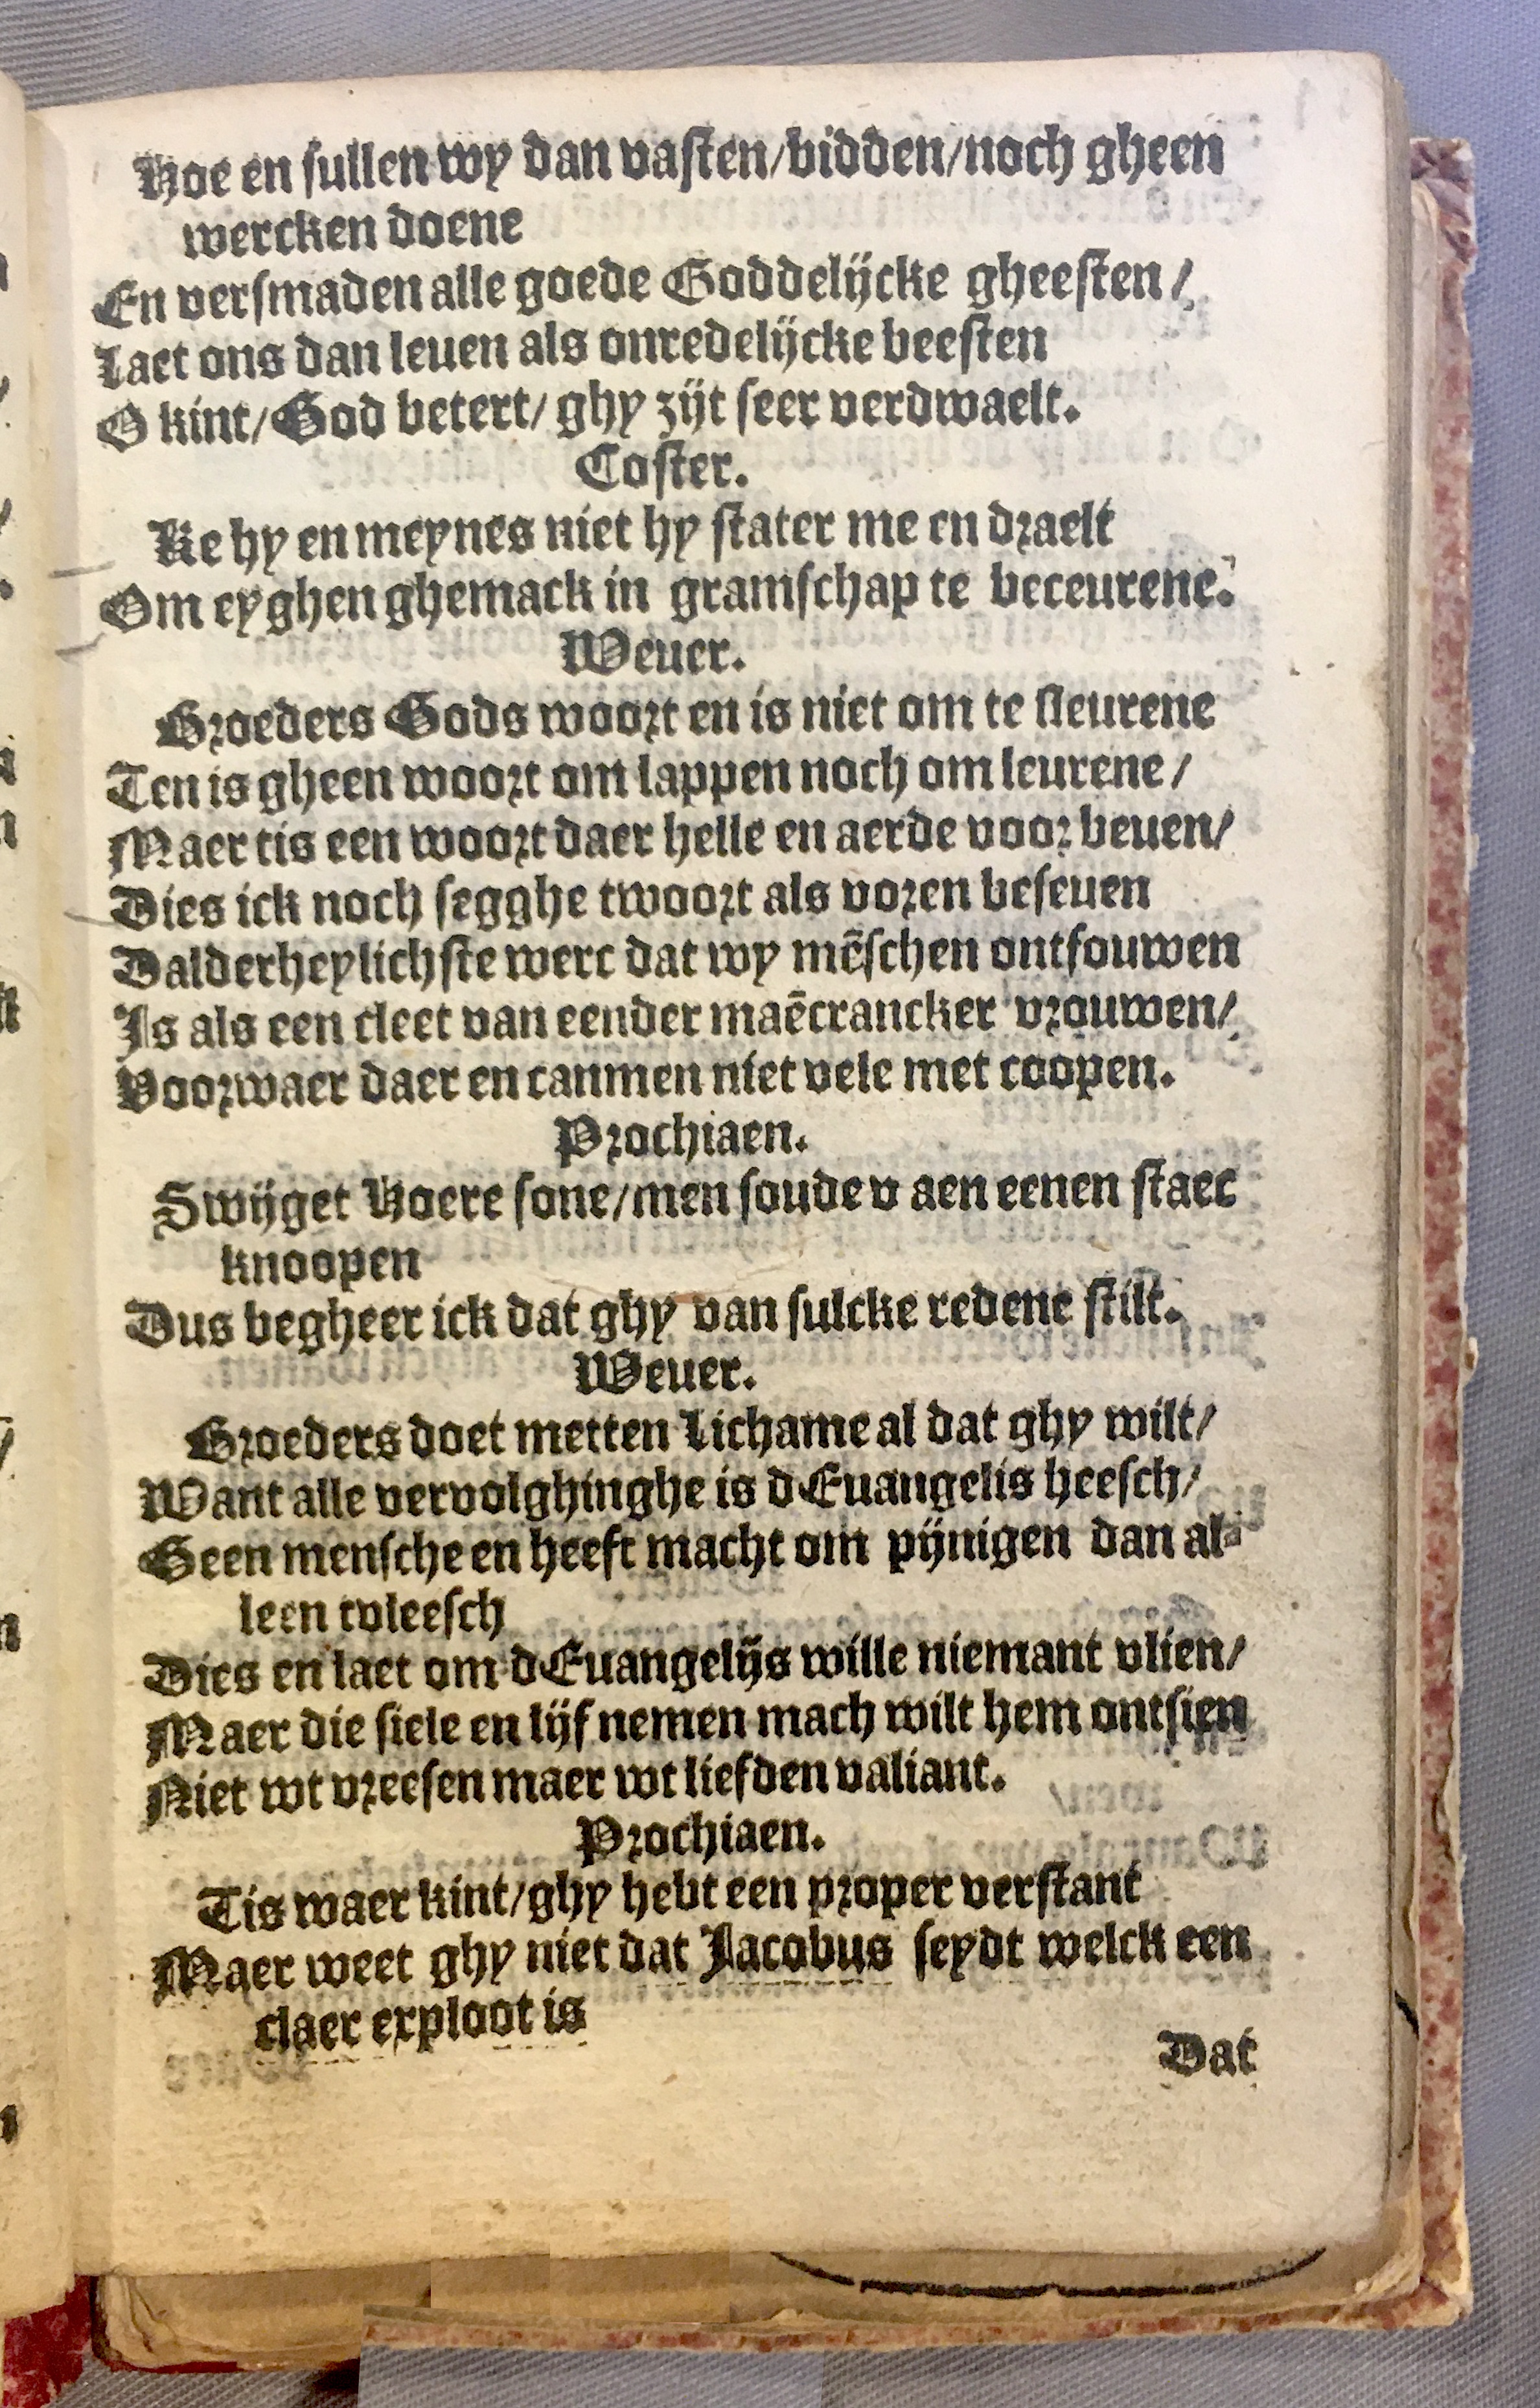 Hoe en sullen wy dan vasten/bidden/noch gheen
wercken doene
En versmaden alle goede Goddelijcke gheesten/
Laet ons dan leuen als onredelijcke beesten
O kint/God betert/ ghy zijt seer verdwaelt.
Coster.
Ke hy en meynes niet hy stater me en draelt
Om eyghen ghemack in gramschap te beceurene.
Weuer.
Broeders Gods woort en is niet om te sleurene
Ten is gheen woort om lappen noch om leurene/
Maer tis een woort daer helle en aerde voor beuen/
Dies ick noch segghe twoort als voren beseuen
Dalderheylichste werc dat wy mēschen ontfouwen
Is als een cleet van eender maēcrancker vrouwen/
Voorwaer daer en canmen niet vele met coopen.
Prochiaen.
Swijget hoere sone/men soude v aen eenen staec
knoopen
Dus begheer ick dat ghy van sulcke redene stilt.
Weuer.
Broeders doet metten Lichame al dat ghy wilt/
Want alle vervolghinghe is dEuangelis heesch/
Geen mensche en heeft macht om pijnigen dan al-
leen tvleesch
Dies en laet om dEuangelijs wille niemant vlien/
Maer die siele en lijf nemen mach wilt hem ontsien
Niet wt vreesen maer wt liefden valiant.
Prochiaen.
Tis waer kint/ghy hebt een proper verstant
Maer weet ghy niet dat Jacobus seydt welck een
claer exploot is
Dat